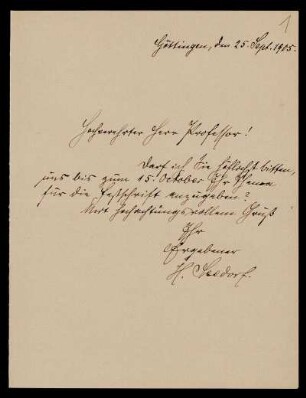 1
Göttingen, den 25. Sept. 1905.
Hochverehrter Herr Professor!
Darf ich Sie höflichst bitten,
uns bis zum 15. October Ihr Thema
für die Festschrift anzugeben?
Mit hochachtungsvollem Gruß
Ihr
Ergebener
H. Seedorf.